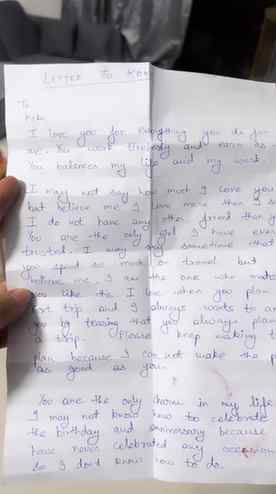 LETTER TO
To
I love you for everything you do for
me. You work tirelessly and earn as
You balances my life and my work.
I may not say how most I love you
but believe me I love more than I
I do not have any other friend than
You are the only girl I have ever
trusted. I may say sometime that
you spend so much on travel but
believe me, I am the one who made
you like this I love when you plan
next trip and I always wants to
you by teasing that you always plan
a trip. Please keep making
plan because I can not make the
as good as you.
You are the only in my life
I may not know how to celebrate
the birthday and anniversary because
have never celebrated any occasion
so I dont know how to do.